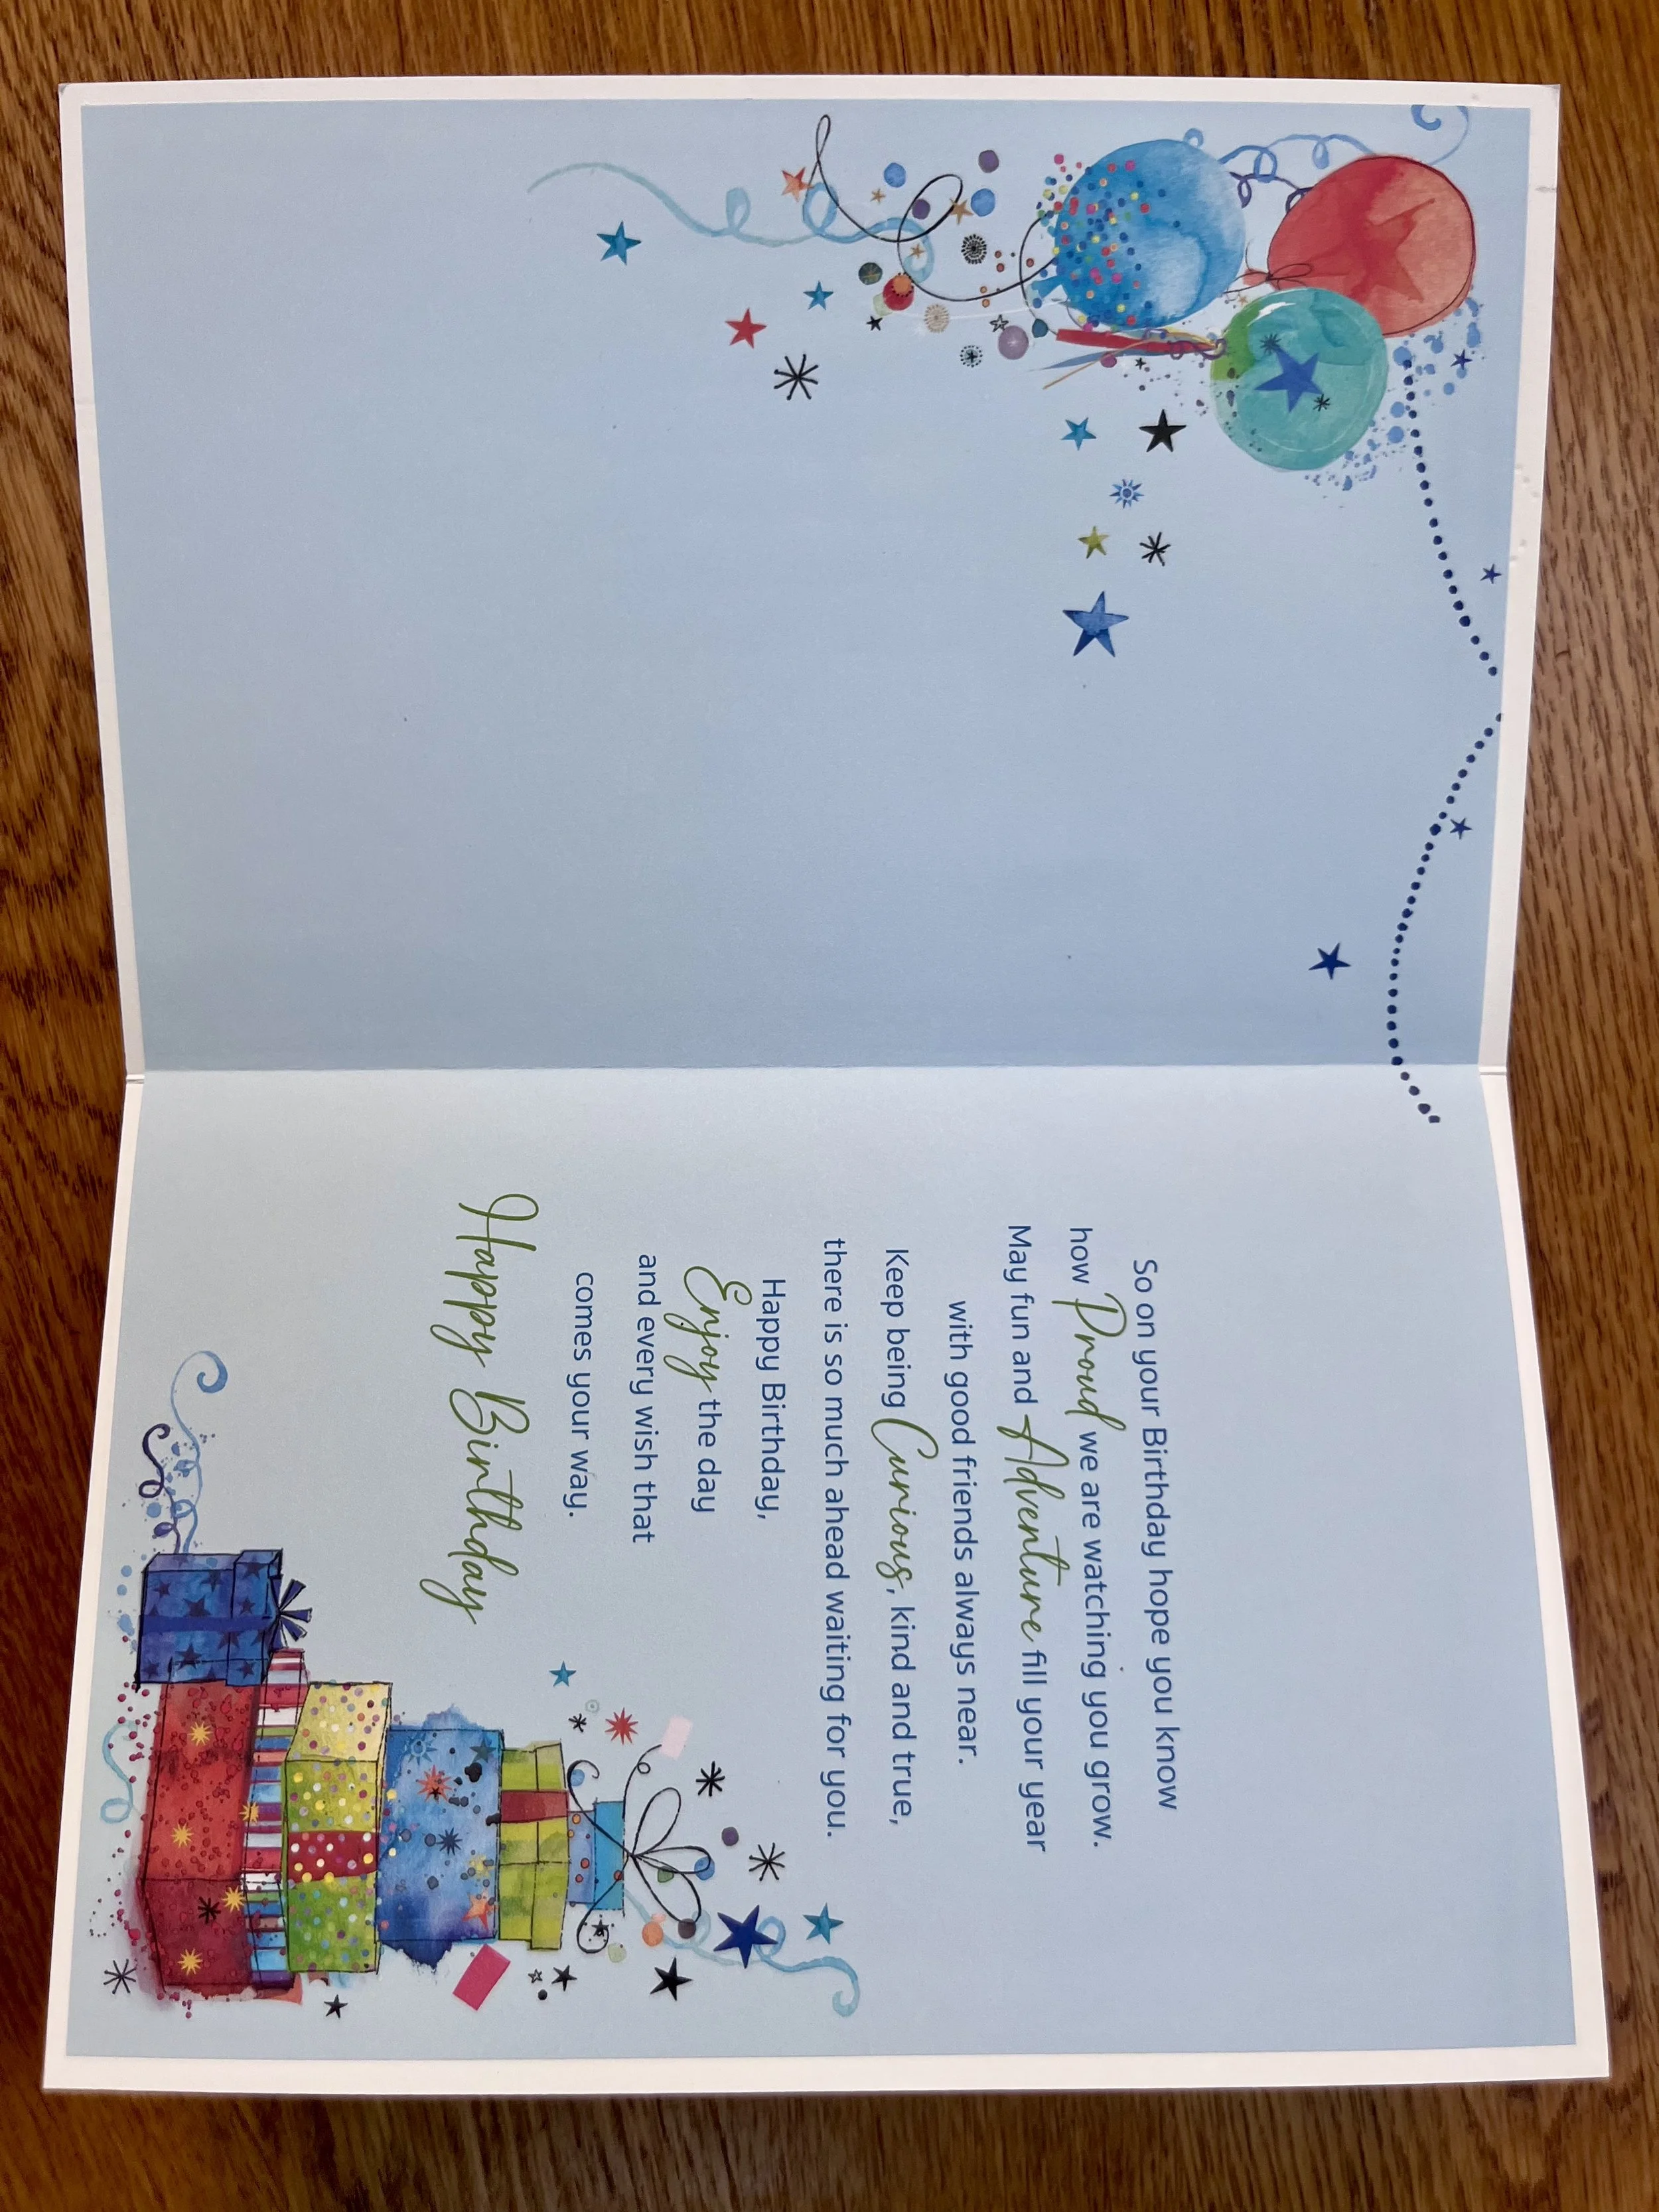 So on your Birthday hope you know
how Proud we are watching you grow.
May fun and Adventure fill your year
with good friends always near.
Keep being Curious, kind and true,
there is so much ahead waiting for you.
Happy Birthday,
Enjoy the day
and every wish that
comes your way.
Happy Birthday